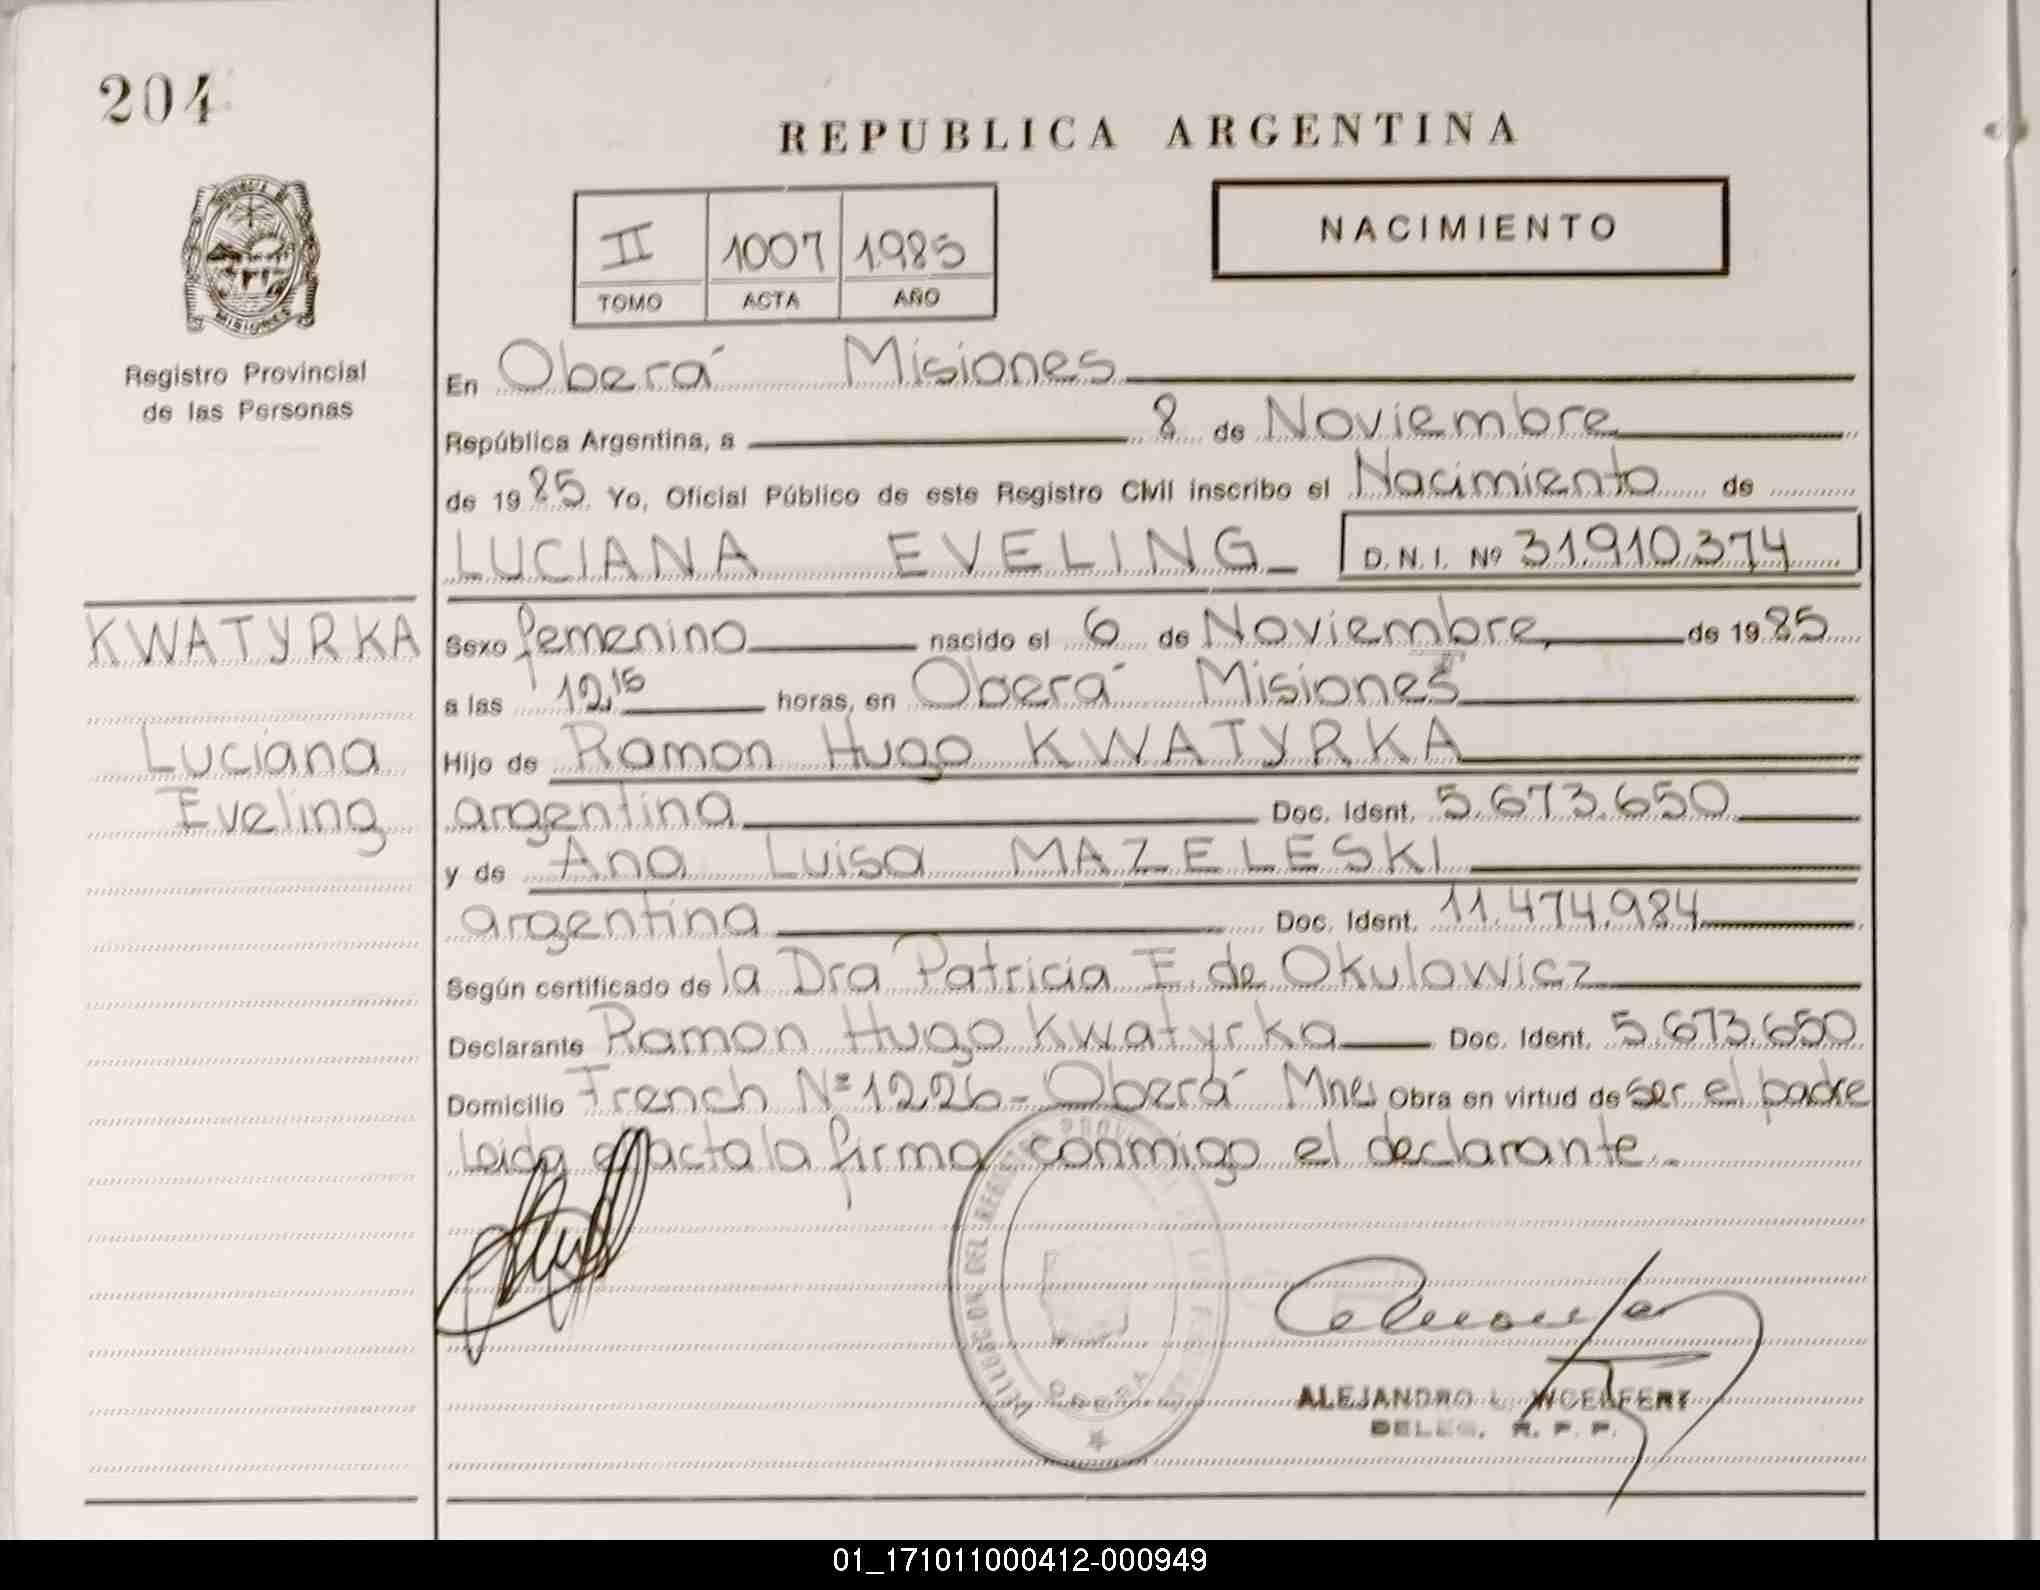 204
REPUBLICA ARGENTINA
PROVINCIA DE
MISIONES
Registro Provincial
de las Personas
II 1007 1985
TOMO ACTA AÑO
NACIMIENTO
En Oberá Misiones
República Argentina, a 8 de Noviembre
de 1985. Yo, Oficial Público de este Registro Civil inscribo el Nacimiento de
LUCIANA EVELING D. N. I. Nº 31.910.374
KWATYRKA
Luciana
Eveling
Sexo femenino nacido el 6 de Noviembre, de 1985
a las 12,15 horas, en Oberá Misiones
Hijo de Ramon Hugo KWATYRKA
argentina Doc. Ident. 5.673.650
y de Ana Luisa MAZELESKI
argentina Doc. Ident. 11.474.984
Según certificado de la Dra Patricia E. de Okulowicz
Declarante Ramon Hugo Kwatyrka Doc. Ident. 5.673.650
Domicilio French Nº 1226 - Oberá Mnes Obra en virtud de ser el padre
Leida el acta la firma conmigo el declarante.-
DEL REGISTRO PROVINCIAL DE LAS
OBERA
ALEJANDRO L. WOELFERT
DELEG. R. P. P.
01_171011000412-000949